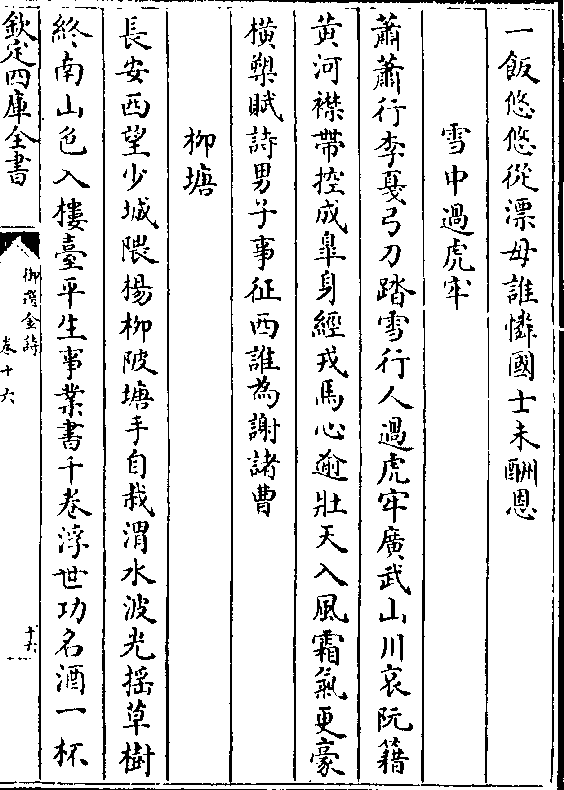 一飯悠悠從漂母誰憐國士未酬恩
雪中過虎牢
蕭蕭行李戛弓刀踏雪行人過虎牢廣武山川哀阮籍
黄河襟帶控成臯身經戎馬心逾壯天入風霜氣更豪
横槊賦詩男子事征西誰為謝諸曹
柳塘
長安西望少城隈楊柳陂塘手自栽渭水波光揺草樹
終南山色入樓臺平生事業書千卷浮世功名酒一杯
欽定四庫全書
御選金詩
卷十六
十六